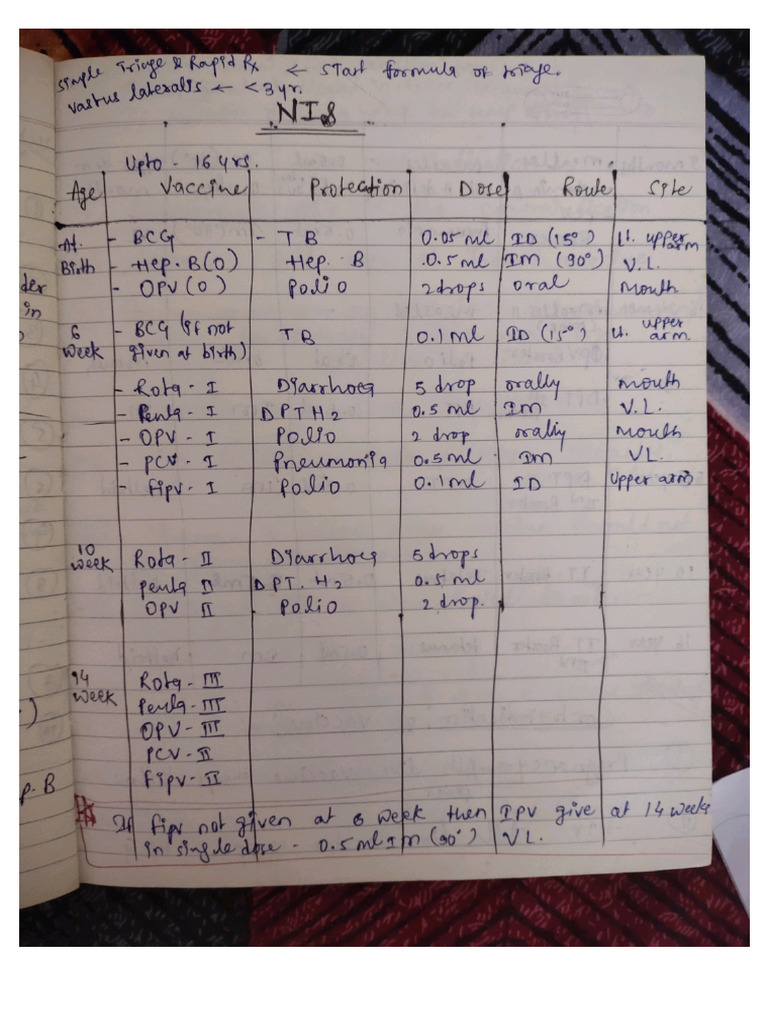 Simple Triage & Rapid Rx ← Start formula of triage.
Vastus lateralis ← < 3 yr.
NIS
Upto - 16 yrs.
Age Vaccine Protection Dose Route Site
At. Birth - BCG - TB 0.05 ml ID (15°) Lt. upper arm
- Hep. B (0) Hep. B 0.5 ml IM (90°) V.L.
- OPV (0) Polio 2 drops oral mouth
6 week - BCG (if not given at birth) TB 0.1 ml ID (15°) Lt. upper arm
- Rota - I Diarrhoea 5 drop orally mouth
- Penta - I DPT H2 0.5 ml IM V.L.
- OPV - I Polio 2 drop orally mouth
- PCV - I Pneumonia 0.5 ml IM VL.
- fipv - I Polio 0.1 ml ID Upper arm
10 week Rota - II Diarrhoea 5 drops
Penta II DPT. H2 0.5 ml
OPV II Polio 2 drop.
14 week Rota - III
Penta - III
OPV - III
PCV - II
fipv - II
If fipv not given at 6 week then IPV give at 14 weeks
in single dose - 0.5 ml IM (90°) VL.
der
in
)
p. B